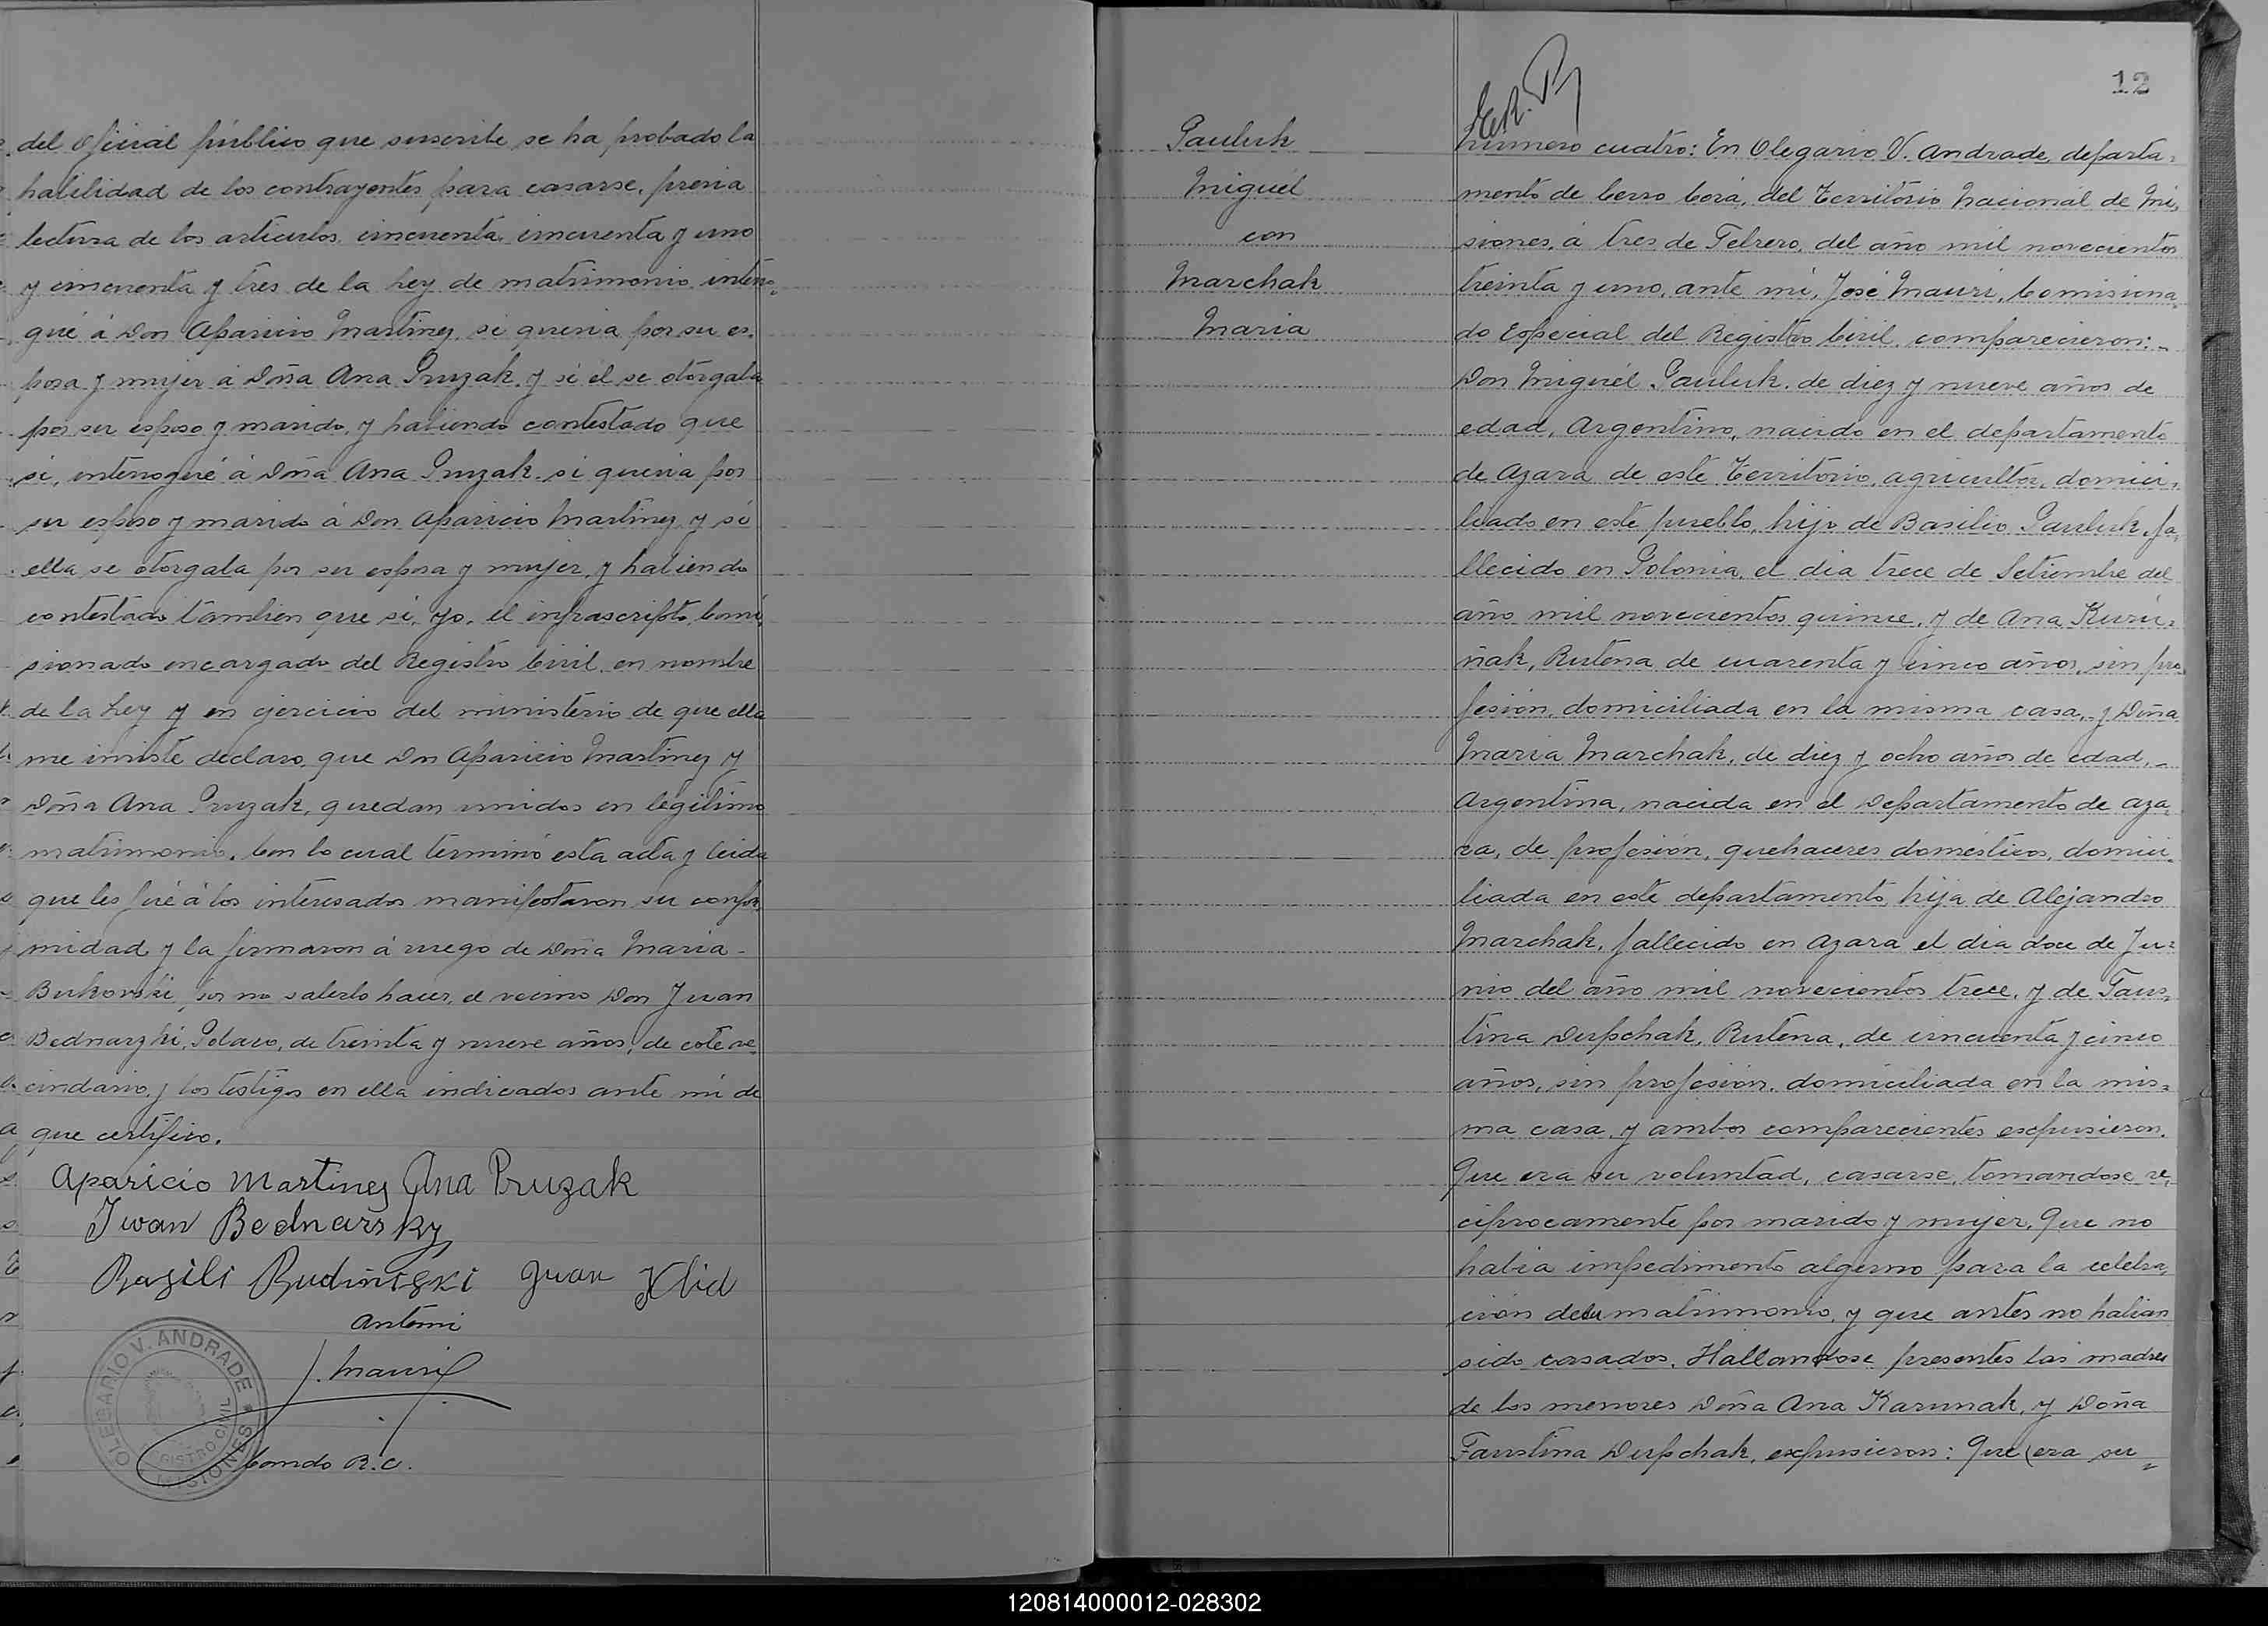 del oficial público que suscribe se ha probado la
habilidad de los contrayentes para casarse, previa
lectura de los articulos, cincuenta, cincuenta y uno
y cincuenta y tres de la Ley de matrimonio, interro=
gué á Don Aparicio Martinez, si queria por su es=
posa y mujer á Doña Ana Pruzak, y si el se otorgaba
por su esposo y marido, y habiendo contestado que
si, interrogué á Doña Ana Pruzak, si queria por
su esposo y marido á Don Aparicio Martinez y si
ella se otorgaba por su esposa y mujer, y habiendo
contestado tambien que si, yo, el infrascripto, Comi=
sionado encargado del Registro Civil, en nombre
de la Ley y en ejercicio del ministerio de que ella
me inviste declaro, que Don Aparicio Martinez y
Doña Ana Pruzak, quedan unidos en legitimo
matrimonio. Con lo cual terminó esta acta y leida
que les fué á los interesados manifestaron su confor=
midad y la firmaron á ruego de Doña Maria
Bukovski, por no saberlo hacer, el vecino Don Juan
Bednarzki, Polaco, de treinta y nueve años, de este ve=
cindario, y los testigos en ella indicados ante mi de
que certifico.
Aparicio Martinez Ana Pruzak
Iwan Bednarsky
Bazili Rudiniski Juan Klid
Antemi
J. Mauri
Comdo R.C.
OLEGARIO V. ANDRADE
REGISTRO CIVIL
MISIONES
12
Pauluk
Miguél
con
Marchak
Maria
Número cuatro: En Olegario V. Andrade, departa=
mento de Cerro Corá, del Territorio Nacional de Mi=
siones, á tres de Febrero, del año mil novecientos
treinta y uno, ante mi, José Mauri, Comisiona=
do Especial del Registro Civil, comparecieron:
Don Miguél Pauluk, de diez y nueve años de
edad, Argentino, nacido en el departamento
de Azara de este Territorio, agricultor, domici=
liado en este pueblo, hijo de Basilio Pauluk, fa=
llecido en Polonia, el dia trece de Setiembre del
año mil novecientos quince, y de Ana Kuru=
ñak, Rutena de cuarenta y cinco años, sin pro=
fesión, domiciliada en la misma casa, y Doña
Maria Marchak, de diez y ocho años de edad,
Argentina, nacida en el Departamento de Aza=
ra, de profesión, quehaceres domésticos, domici=
liada en este departamento, hija de Alejandro
Marchak, fallecido en Azara el dia doce de Ju=
nio del año mil novecientos trece, y de Faus=
tina Dupchak, Rutena, de cincuenta y cinco
años, sin profesión, domiciliada en la mis=
ma casa, y ambos comparecientes expusieron.
Que era su voluntad, casarse, tomandose re=
ciprocamente por marido y mujer, Que no
habia impedimento alguno para la celebra=
ción de su matrimonio, y que antes no habian
sido casados. Hallandose presentes las madres
de los menores Doña Ana Karunak, y Doña
Faustina Dupchak, expusieron: Que era su=
120814000012-028302